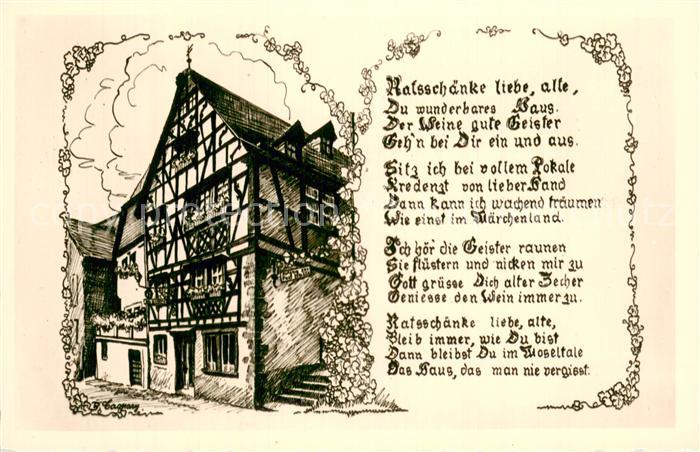 Ratsschänke liebe, alte,
Du wunderbares Haus.
Der Weine gute Geister
Geh'n bei Dir ein und aus.
Sitz ich bei vollem Pokale
Kredenzt von lieber Hand
Dann kann ich wachend träumen
Wie einst im Märchenland.
Ich hör die Geister raunen
Sie flüstern und nicken mir zu
Gott grüsse Dich alter Zecher
Geniesse den Wein immer zu.
Ratsschänke liebe, alte,
Bleib immer, wie Du bist
Dann bleibst Du im Moseltale
Das Haus, das man nie vergisst.